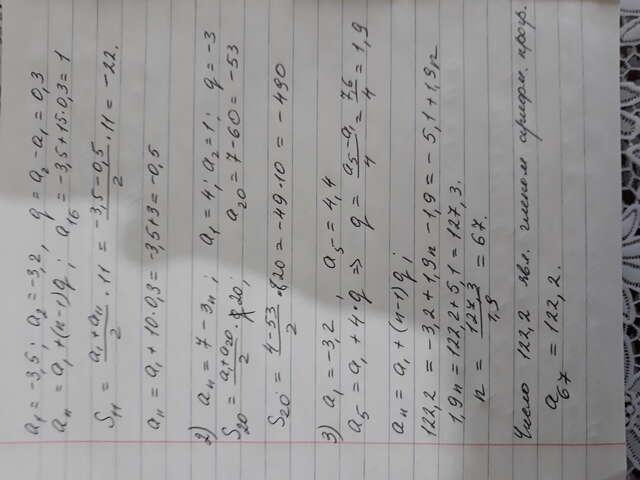 a₁ = -3,5; a₂ = -3,2, q = a₂ - a₁ = 0,3
aₙ = a₁ + (n-1)q; a₁₆ = -3,5 + 15·0,3 = 1
S₁₁ = (a₁ + a₁₁)/2 · 11 = (-3,5 - 0,5)/2 · 11 = -22.
a₁₁ = a₁ + 10·0,3 = -3,5 + 3 = -0,5
2) aₙ = 7 - 3n; a₁ = 4; a₂ = 1; q = -3
S₂₀ = (a₁ + a₂₀)/2 · 20; a₂₀ = 7 - 60 = -53
S₂₀ = (4 - 53)/2 · 20 = -49·10 = -490
3) a₁ = -3,2, a₅ = 4,4
a₅ = a₁ + 4·q ⇒ q = (a₅ - a₁)/4 = 7,6/4 = 1,9
aₙ = a₁ + (n-1)q;
122,2 = -3,2 + 1,9n - 1,9 = -5,1 + 1,9n
1,9n = 122,2 + 5,1 = 127,3.
n = 127,3/1,9 = 67.
Число 122,2 явл. членом арифм. прогр.
a₆₇ = 122,2.